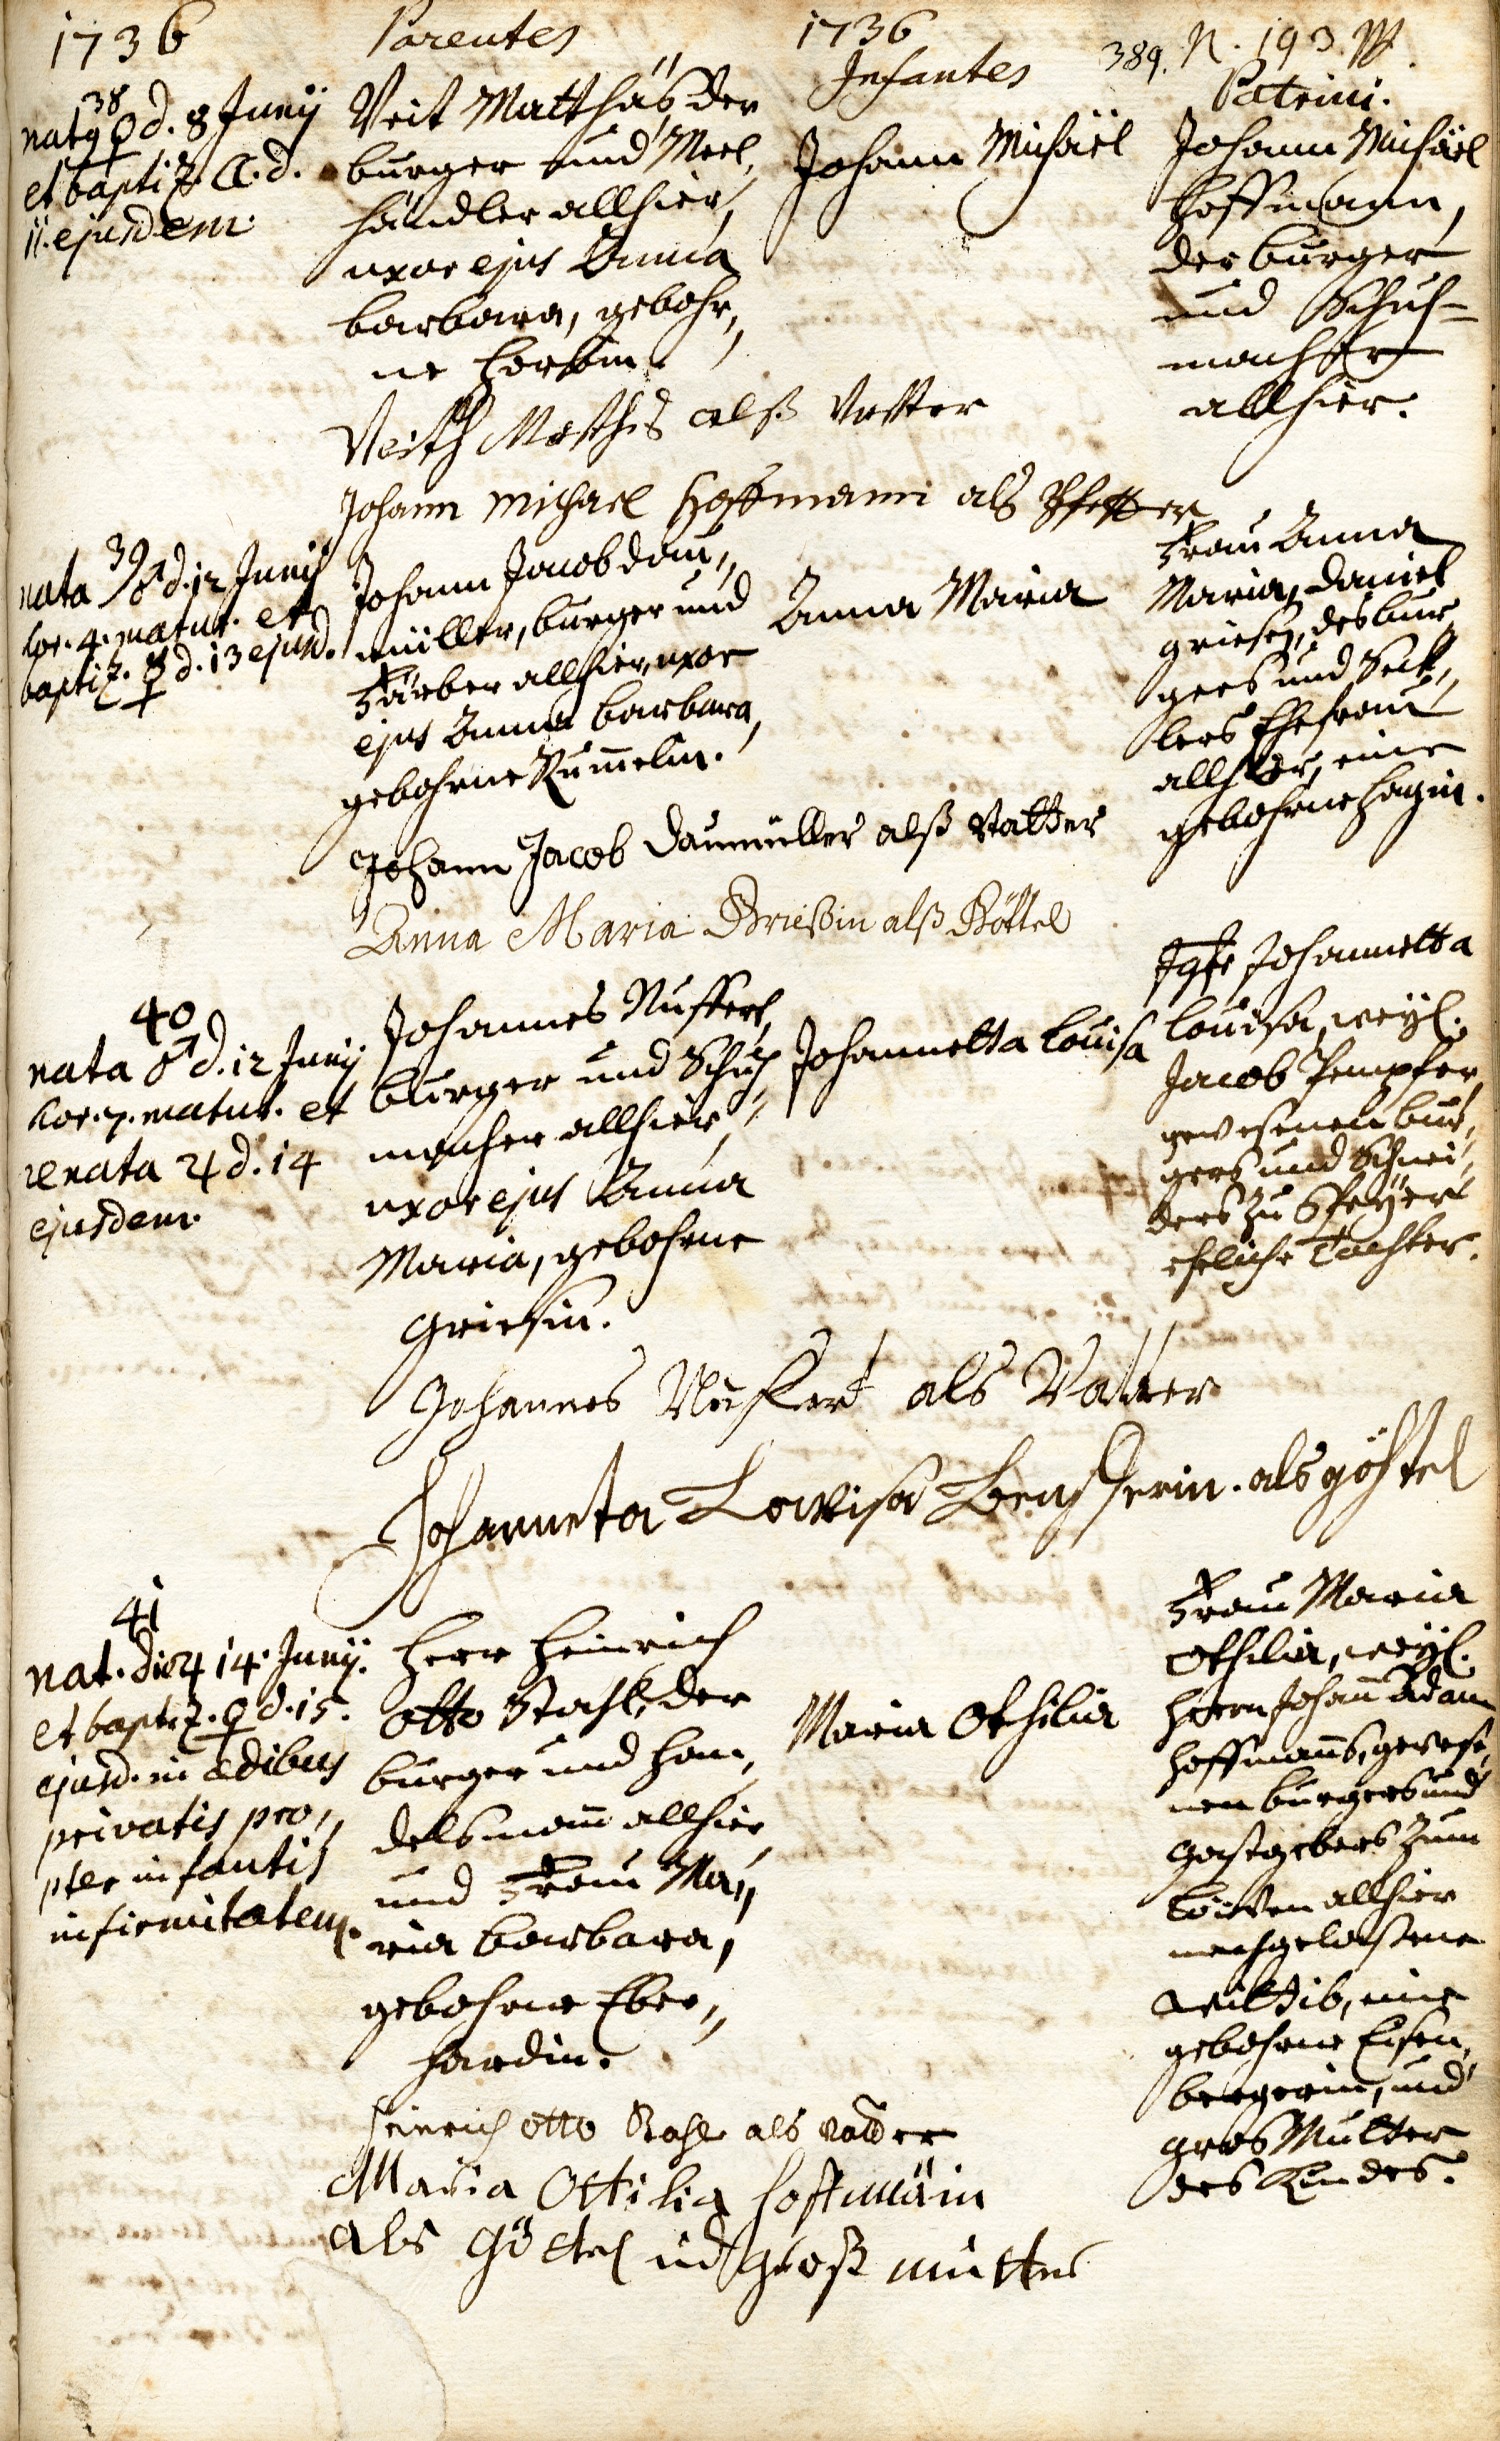 1736
Parentes
1736
Infantes
389. N. 193.
Patrini.
38
natq ♀ d. 8 Junÿ
et baptiz. d.
11. ejusdem.
Veit Matthäs, der
burger und Meel,
händler allhier,
uxor ejus Anna
barbara, gebohr,
ne
Johann Michäel
Johann Michäel
Hoffmann,
der burger
und Schuh-
macher
allhier.
Veith Mathis alß Vatter
Johann Michael Hoffmann als Pfetter
39
nata ♂ d. 12 Junÿ
hor. 4. matut. et
baptiz. ☿ d. 13 ejusd.
Johann Jacob dau„
müller, burger und
Färber allhier, uxor
ejus Anna barbara,
gebohrne Rum̄elin.
Anna Maria
Frau Anna
Maria, Daniel
Griesen, des bur,
gers und Seck,,
lers Ehefrau
allhier, eine
gebohrne Hagin.
Johann Jacob Daumüller alß Vatter
Anna Maria Grießin alß Göttel
40
nata ♂ d. 12 Junÿ
hor. 7. matut. et
renata ♃ d. 14
ejusdem.
Johannes Nuffert,
burger und Schuh
macher allhier,
uxor ejus Anna
Maria, gebohrne
Griesin.
Johannetta Louisa
Jgfr Johannetta
Louisa, weÿl.
Jacob
gewesenen bur,
gers und Schnei,
ders zu Speÿer
ehliche Tochter.
Johannes Nuffert als Vatter
Johanneta Lowisa als göhtel
41
nat. die ♃ 14. Junÿ.
et baptiz. ♀ d. 15.
ejusd. in ædibus
privatis pro,,
pter infantis
infirmitatem.
Herr Heinrich
Otto Stahl, der
burger und Han,
delsmañ allhier
und Frau Ma,,
ria barbara,
gebohrne Eber,,
hardin.
Maria Othilia
Frau Maria
Othilia, weÿl.
Herrn Johañ Adam
Hoffmañs, gewese,
nen burgers und
Gastgebers zum
Löwen allhier
nachgelaßene
Wittib, eine
gebohrne Eisen,
bergerin, und
Gros Mutter
des Kindes.
Heinrich Otto Stahl als Vatter
Maria Ottilia Hoffmäin
als Göttel ud groß mutter